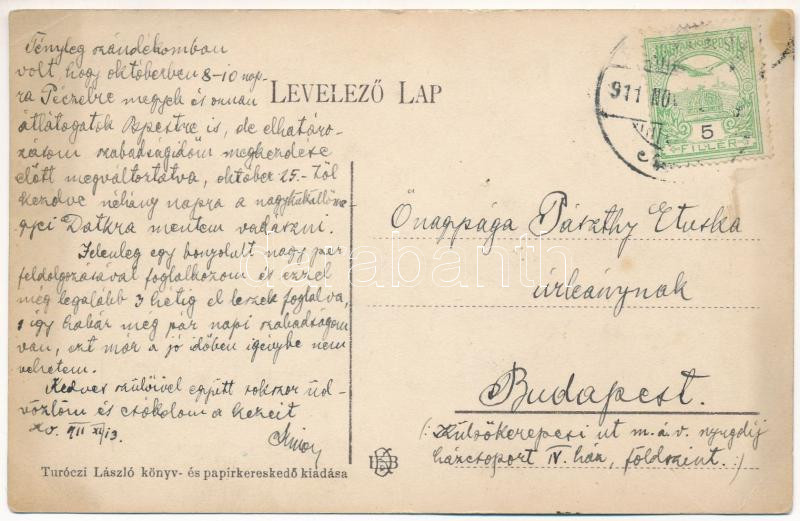 Tényleg szándékomban
volt, hogy oktoberben 8-10 nap-
ra Péczelre megyek és onnan
átlátogatok Bpestre is, de elhatáro-
zásom szabadságidőm megkezdése
előtt megváltoztatva, oktober 25.-től
kezdve néhány napra a nagyküküllőme-
gyei Datkra mentem vadászni.
Jelenleg egy bonyolult nagy pör
feldolgozásával foglalkozom és ezzel
még legalább 3 hétig el leszek foglalva,
s így habár még pár napi szabadságom
van, ezt már a jó időben igénybe nem
vehetem.
Kedves szülőivel együtt sokszor üd-
vözlöm és csókolom a kezeit
911 XI/13.
LEVELEZŐ LAP
MAGYAR KIR. POSTA
5
FILLÉR
911 NOV
Őnagysága Pászthy Etuska
úrleánynak
Budapest.
(: Külsőkerepesi út m.á.v. nyugdíj
házcsoport IV. ház, földszint. :)
Turóczi László könyv- és papirkereskedő kiadása
darabanth